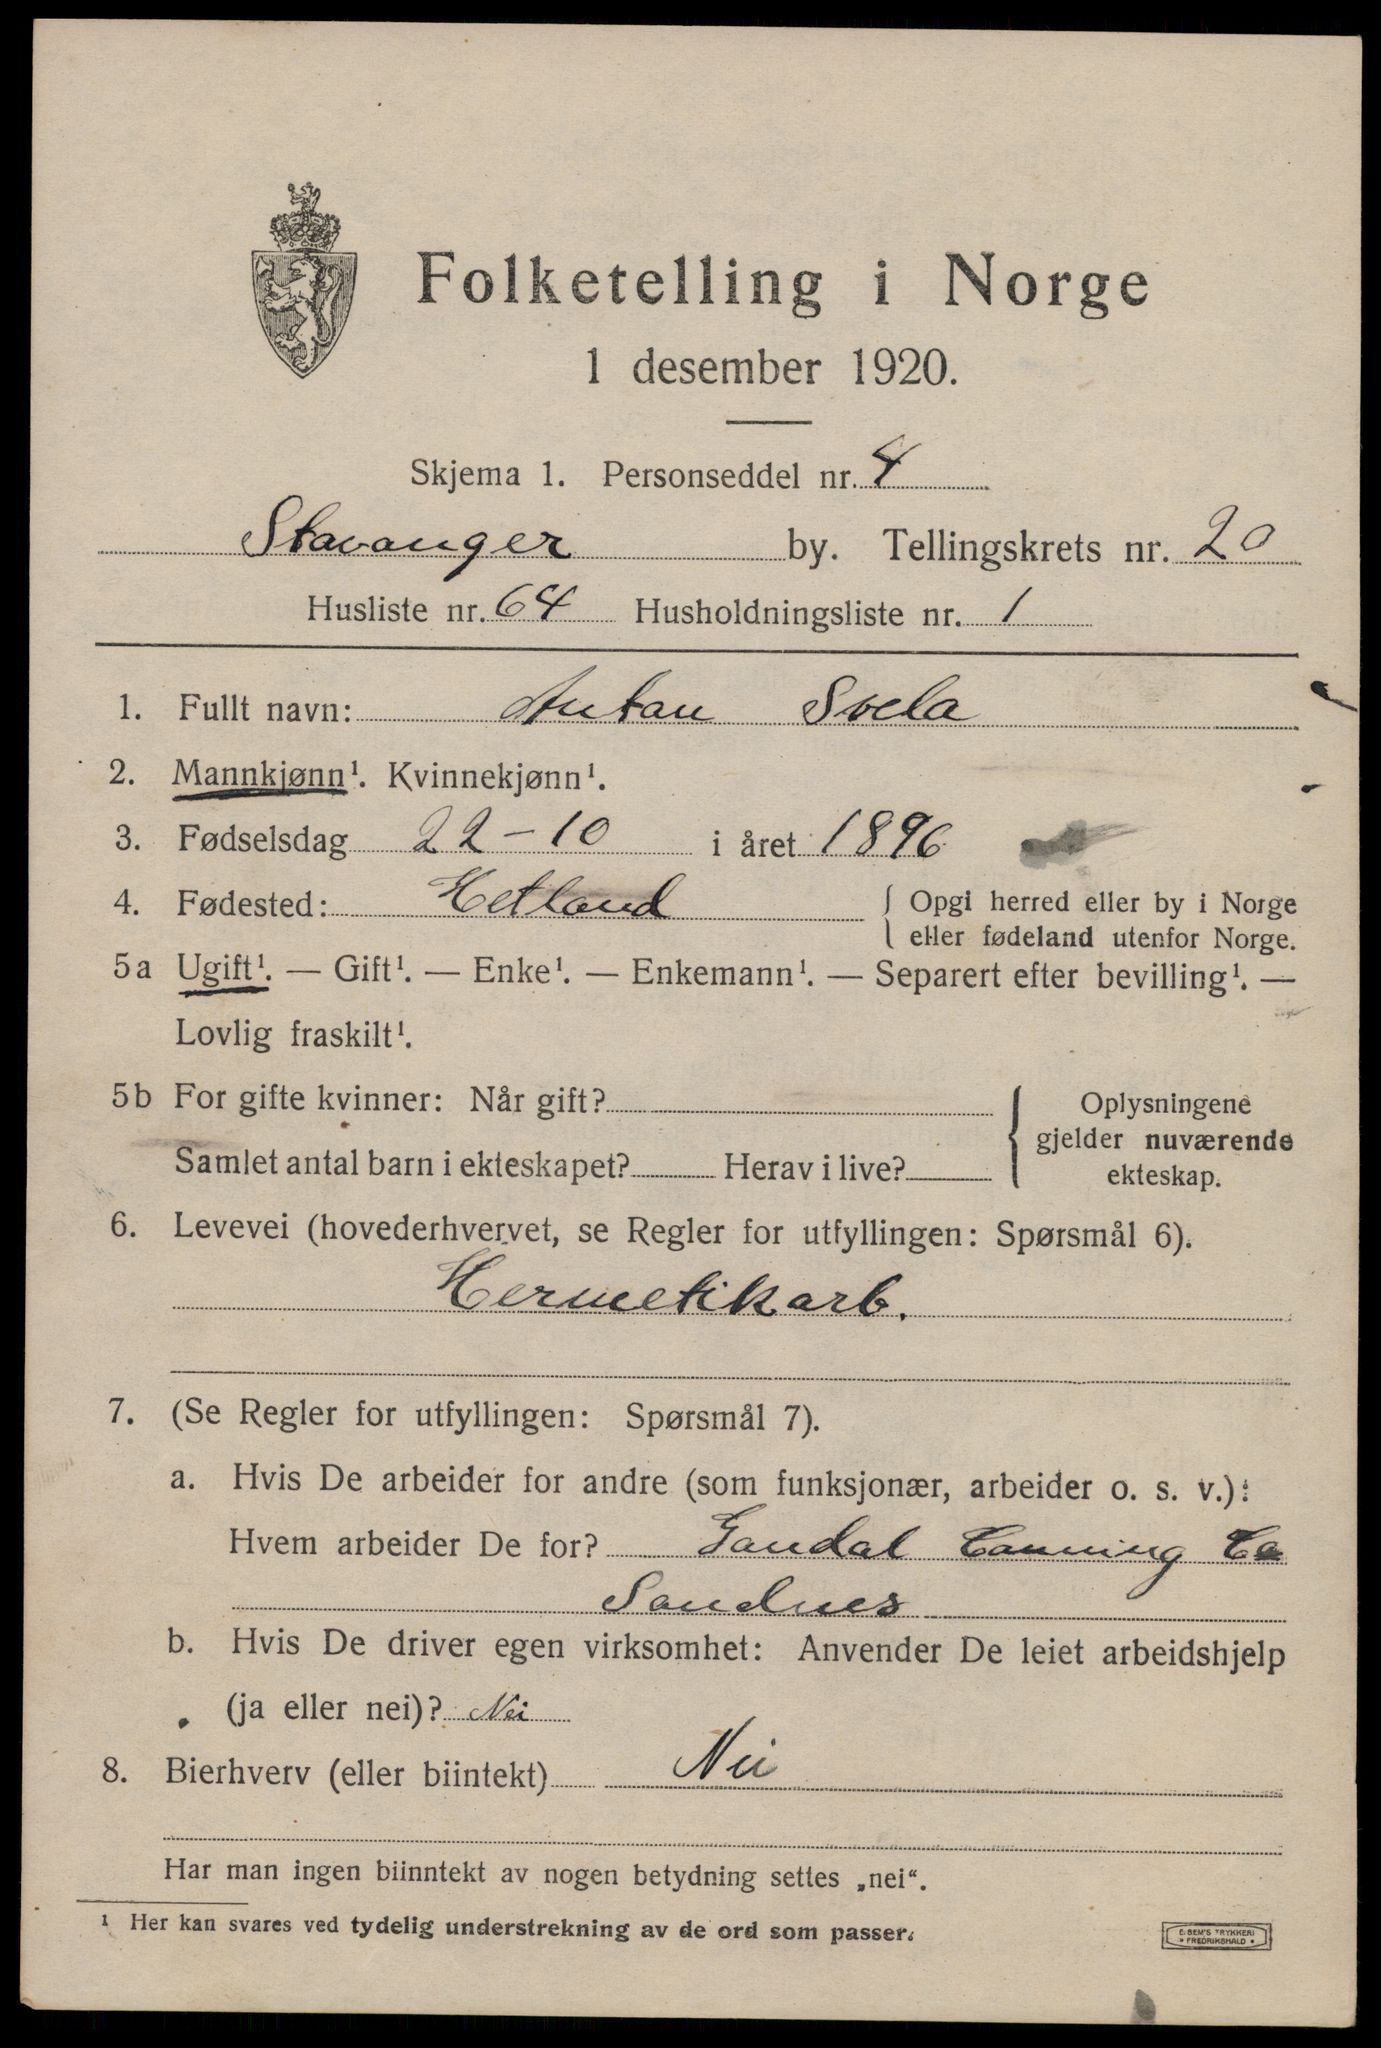 Folketelling i Norge
1 desember 1920.
Skjema 1. Personseddel nr. 4
Stavanger by. Tellingskrets nr. 20
Husliste nr. 64 Husholdningsliste nr. 1
1. Fullt navn: Anton Svela
2. Mannkjønn¹. Kvinnekjønn¹.
3. Fødselsdag 22-10 i året 1896
4. Fødested: Hetland { Opgi herred eller by i Norge
eller fødeland utenfor Norge.
5a Ugift¹. — Gift¹. — Enke¹. — Enkemann¹. — Separert efter bevilling¹. —
Lovlig fraskilt¹.
5b For gifte kvinner: Når gift? Oplysningene
gjelder nuværende
Samlet antal barn i ekteskapet? Herav i live? ekteskap.
6. Levevei (hovederhvervet, se Regler for utfyllingen: Spørsmål 6).
Hermetikarb.
7. (Se Regler for utfyllingen: Spørsmål 7).
a. Hvis De arbeider for andre (som funksjonær, arbeider o. s. v.):
Hvem arbeider De for? Gandal Canning Co
Sandnes
b. Hvis De driver egen virksomhet: Anvender De leiet arbeidshjelp
(ja eller nei)? Nei
8. Bierhverv (eller biintekt) Nei
Har man ingen biinntekt av nogen betydning settes „nei“.
¹ Her kan svares ved tydelig understrekning av de ord som passer.
E. SEM'S TRYKKERI
FREDRIKSHALD